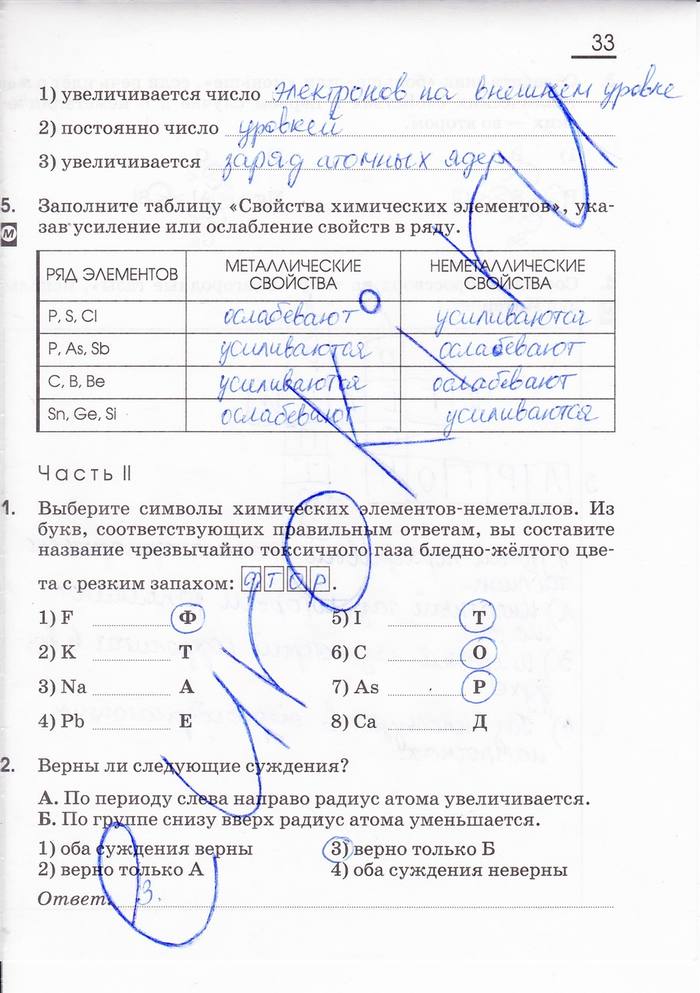 33
1) увеличивается число электронов на внешнем уровне
2) постоянно число уровней
3) увеличивается заряд атомных ядер
5. Заполните таблицу «Свойства химических элементов», ука-
М зав усиление или ослабление свойств в ряду.
РЯД ЭЛЕМЕНТОВ МЕТАЛЛИЧЕСКИЕ СВОЙСТВА НЕМЕТАЛЛИЧЕСКИЕ СВОЙСТВА
P, S, Cl ослабевают усиливаются
P, As, Sb усиливаются ослабевают
C, B, Be усиливаются ослабевают
Sn, Ge, Si ослабевают усиливаются
Часть II
1. Выберите символы химических элементов-неметаллов. Из
букв, соответствующих правильным ответам, вы составите
название чрезвычайно токсичного газа бледно-жёлтого цве-
та с резким запахом: ФТОР.
1) F Ф 5) I Т
2) K Т 6) C О
3) Na А 7) As Р
4) Pb Е 8) Ca Д
2. Верны ли следующие суждения?
А. По периоду слева направо радиус атома увеличивается.
Б. По группе снизу вверх радиус атома уменьшается.
1) оба суждения верны 3) верно только Б
2) верно только А 4) оба суждения неверны
Ответ: 3.